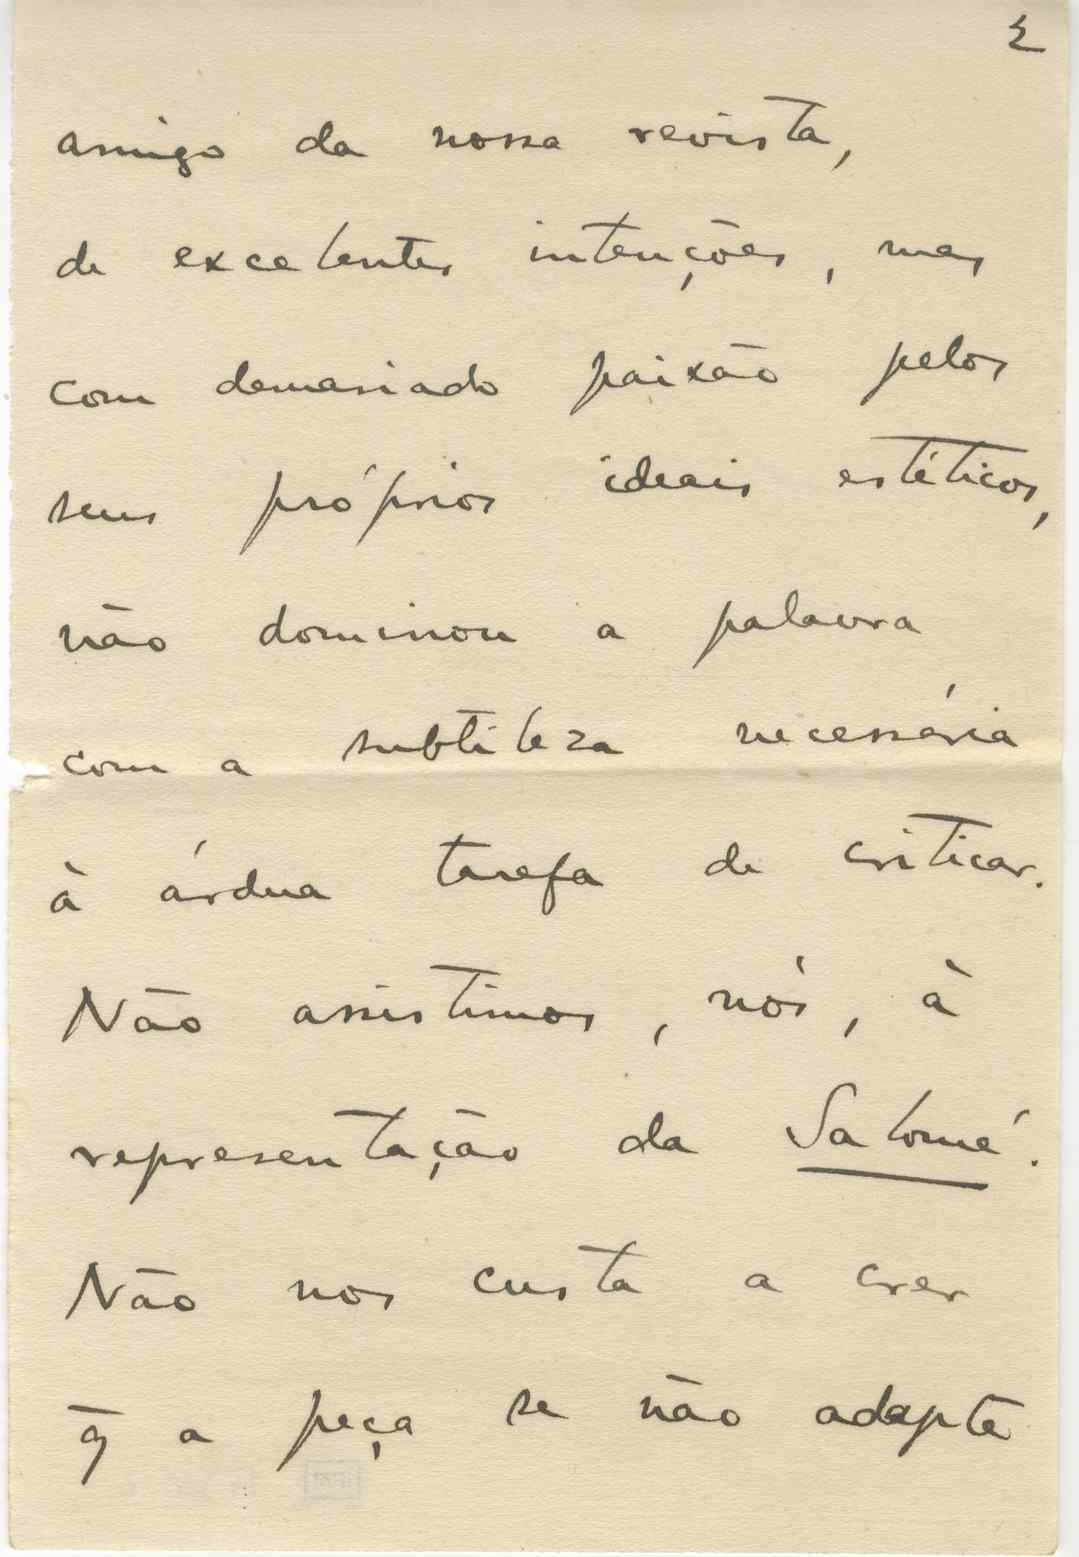 2
amigo da nossa revista,
de excelentes intenções, mas
com demasiado paixão pelos
seus próprios ideais estéticos,
não dominou a palavra
com a subtileza necessária
à árdua tarefa de criticar.
Não assistimos, nós, à
representação da Salomé.
Não nos custa a crer
q̄ a peça se não adapte